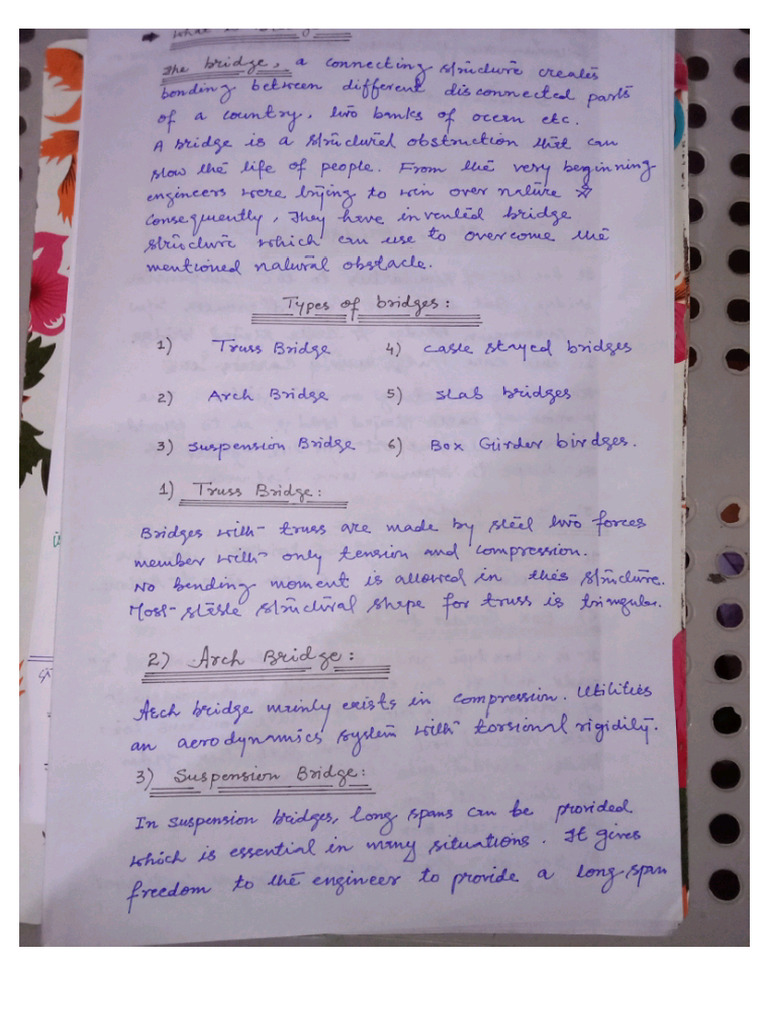 ➡ What is
The bridge, a connecting structure creates
bonding between different disconnected parts
of a country, two banks of ocean etc.
A bridge is a structural obstruction that can
slow the life of people. From the very beginning
engineers were trying to win over nature &
consequently, They have invented bridge
structure which can use to overcome the
mentioned natural obstacle.
Types of bridges:
1) Truss Bridge 4) Casle stayed bridges
2) Arch Bridge 5) Slab bridges
3) Suspension Bridge 6) Box Girder birdges.
1) Truss Bridge:
Bridges with truss are made by steel two forces
member with only tension and compression.
No bending moment is allowed in this structure.
Most stable structural shape for truss is triangular.
2) Arch Bridge:
Arch bridge mainly exists in compression. Utilities
an aerodynamics system with torsional rigidity.
3) Suspension Bridge:
In suspension bridges, long spans can be provided
which is essential in many situations. It gives
freedom to the engineer to provide a long span